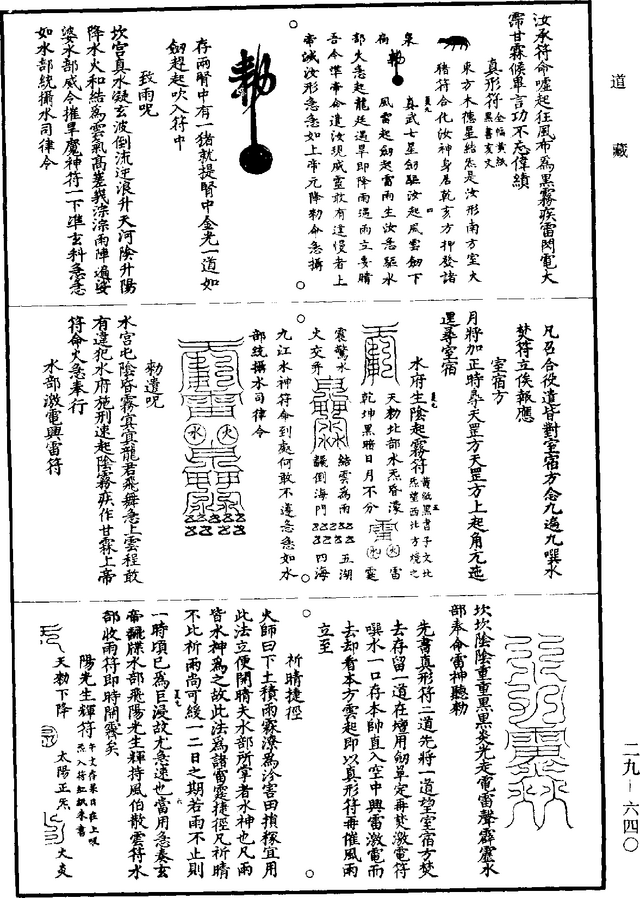 道藏
汝承符命噓起狂風布為黑霧疾雷閃電大
霈甘霖候畢言功不忘偉績
真形符
東方木德星結炁是汝形南方室火
豬符合化汝神身居乾亥方押發諸
真武士星劍驅汝起風雲劍下
風雷起劍起雷雨生汝急驅水
部火急起龍廷遇旱即降雨遇雨立要晴
吾今準帝命遣汝現威靈敢有違慢者上
帝誡汝形急急如上帝元降勑命急攝
勑
存兩腎中有一豬就提腎中金光一道如
劍趕起吹入符中
致雨呪
坎宮真水凝玄波倒流逆浪升天河陰升陽
降水火和結為雲氣高嵳峩淙淙雨陣遍娑
婆水部威令摧旱魔神符一下準玄科急急
如水部統攝水司律令
凡召合役遣皆對室宿方念九遍九噀水
焚符立俟報應
室宿方
月將加正時尋天罡方天罡方上起角亢迤
邐尋室宿
水府生陰起霧符
天勑北部水炁昏濛
乾坤黑暗日月不分
震驚水
火交升
結雲為雨
議倒海門
五湖
四海
九江水神符命到處何敢不遵急急如水
部統攝水司律令
水
火
勑遣呪
水宮屯陰昏霧㝠㝠龍君飛舞急上雲程敢
有違犯水府施刑速起陰霧疾作甘霖上帝
符命火急奉行
水部激電興雷符
坎坎陰陰重重黑黑炎光走電雷聲霹靂水
部奉命雷神聽勑
先書真形符二道先將一道望室宿方焚
去存留一道在壇用劍單定再焚激電符
噀水一口存本帥直入空中興雷激電而
去却看本方雲起即以真形符再催風雨
立至
祈晴捷徑
火師曰下土積雨霖潦為沴害田損稼宜用
此法立便開晴夫水部所掌者水神也凡雨
皆水神為之故此法為諸雷霆捷徑凡祈晴
不比祈雨尚可緩一二日之期若雨不止則
一時頃已為巨浸故尤急速也當用急奏玄
帝飜牒水部飛陽光生輝持風伯散雲符水
部收雨符即時開霽矣
陽光生輝符
天勑下降
太陽正炁
火炎
二九—六四〇